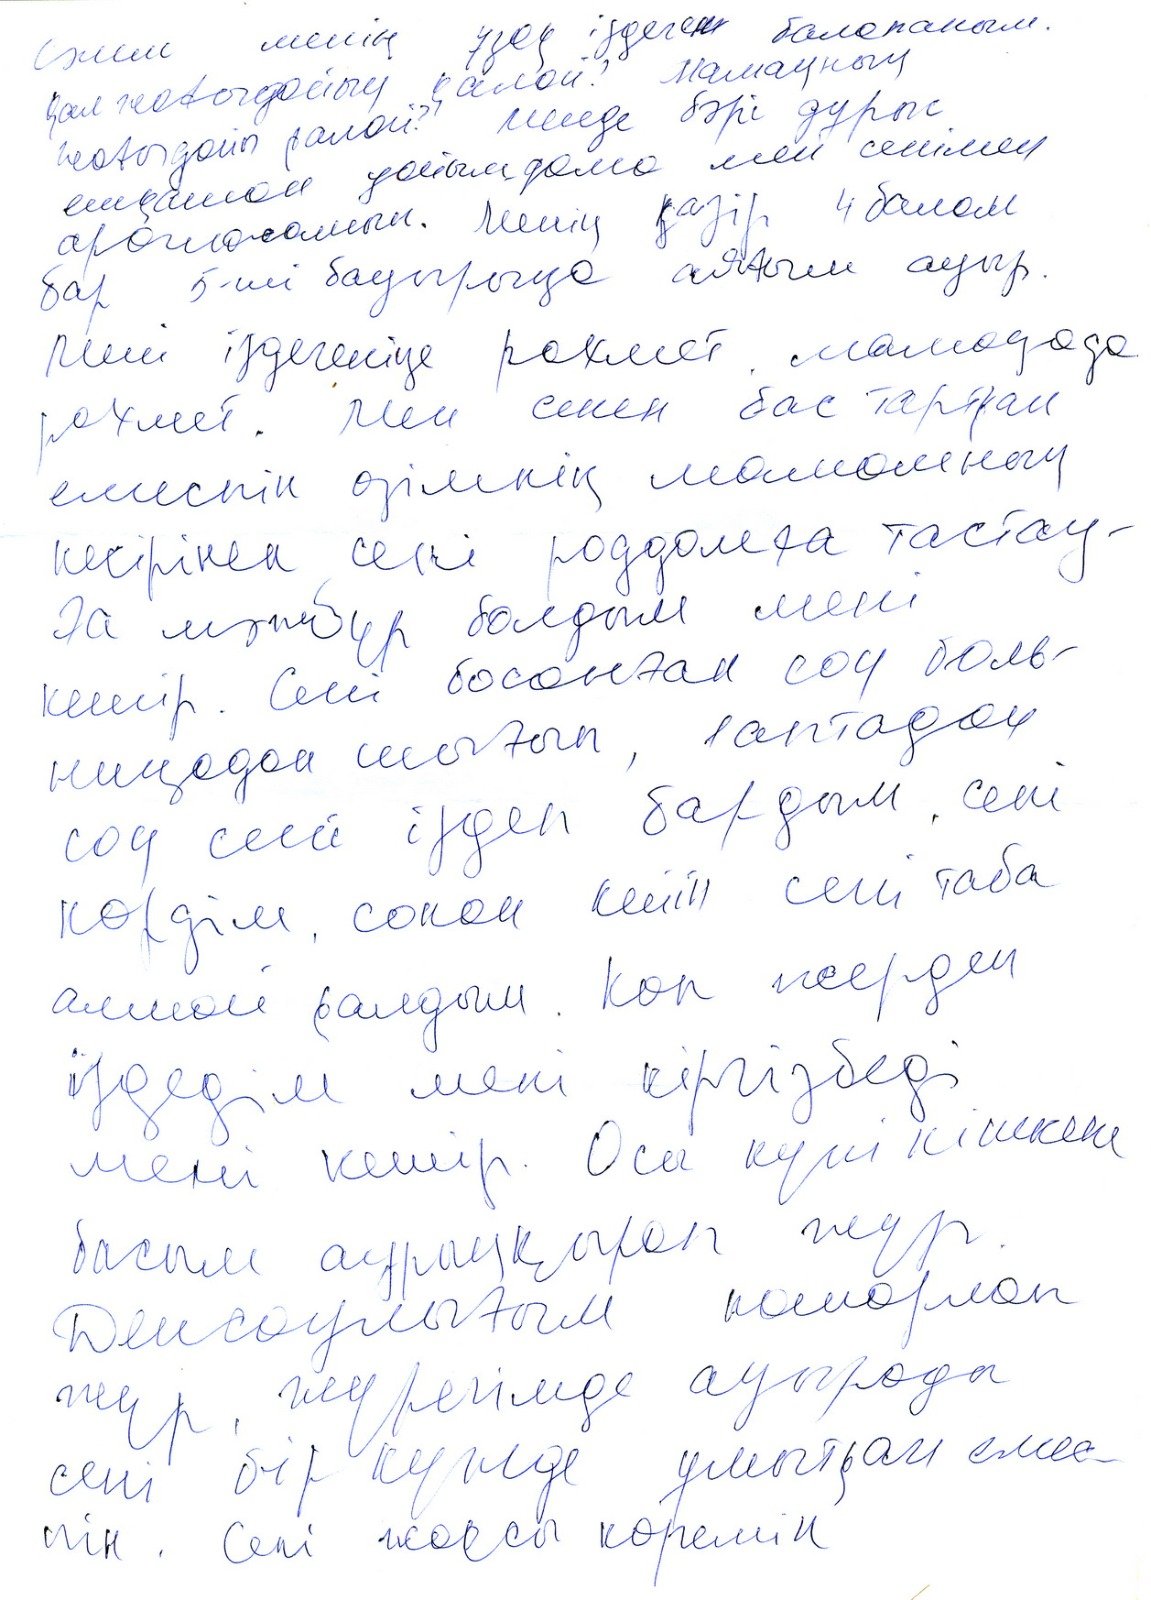 менің узақ іздеген балапаным.
қал жағыдайың қалай? Мамаңның
жағыдайы қалай? Менде бәрі дурыс
ешқашан уайымдама мен сенімен
арақтасамын. Менің қазір 4 балам
бар 5-ші бауырыңа аяғым ауыр.
Мені іздегеніңе рахмет, мамаңада
рахмет. Мен сенен бас тартқан
емеспін өзімнің мамамның
кесірінен сені роддомға тастау-
ға мәжбүр болдым мені
кешір. Сені босанған соң боль-
ницадан шығып, 1 аптадан
соң сені іздеп бардым, сені
көрдім, сонан кейін сені таба
алмай қалдым. Көп жерден
іздедім мені кіргізбеді
мені кешір. Осы куні кішкене
басым ауырыңқырап жур.
Денсаулығым нашарлап
жур, журегімде ауырады
сені бір кунде умытқан емес-
пін. Сені жақсы көремін